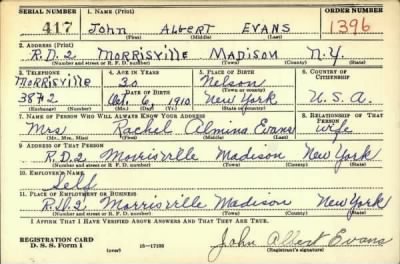 SERIAL NUMBER 1. NAME (Print) ORDER NUMBER
417 John Albert EVANS 1396
(First) (Middle) (Last)
2. ADDRESS (Print)
R.D.2 Morrisville Madison N.Y.
(Number and street or R. F. D. number) (Town) (County) (State)
3. TELEPHONE 4. AGE IN YEARS 5. PLACE OF BIRTH 6. COUNTRY OF CITIZENSHIP
Morrisville 30 Nelson
DATE OF BIRTH (Town or county)
38F2 Oct. 6, 1910 New York U.S.A.
(Exchange) (Number) (Mo.) (Day) (Yr.) (State or country)
7. NAME OF PERSON WHO WILL ALWAYS KNOW YOUR ADDRESS 8. RELATIONSHIP OF THAT PERSON
Mrs Rachel Almina Evans wife
(Mr., Mrs., Miss) (First) (Middle) (Last)
9. ADDRESS OF THAT PERSON
R.D.2 Morrisville Madison New York
(Number and street or R. F. D. number) (Town) (County) (State)
10. EMPLOYER'S NAME
Self
11. PLACE OF EMPLOYMENT OR BUSINESS
R.D.2 Morrisville Madison New York
(Number and street or R. F. D. number) (Town) (County) (State)
I AFFIRM THAT I HAVE VERIFIED ABOVE ANSWERS AND THAT THEY ARE TRUE.
REGISTRATION CARD
D. S. S. Form 1 (over) 16—17105 John Albert Evans
(Registrant's signature)